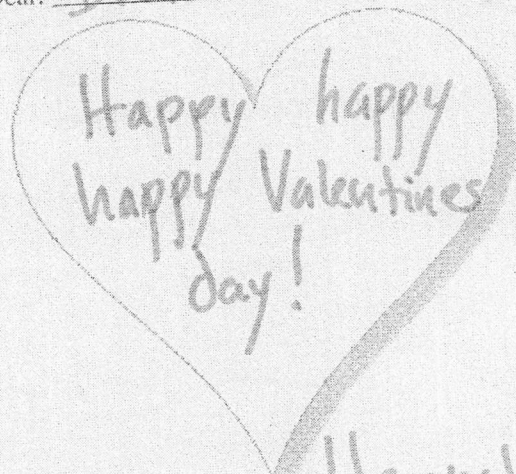 Happy happy
happy Valentines
day!